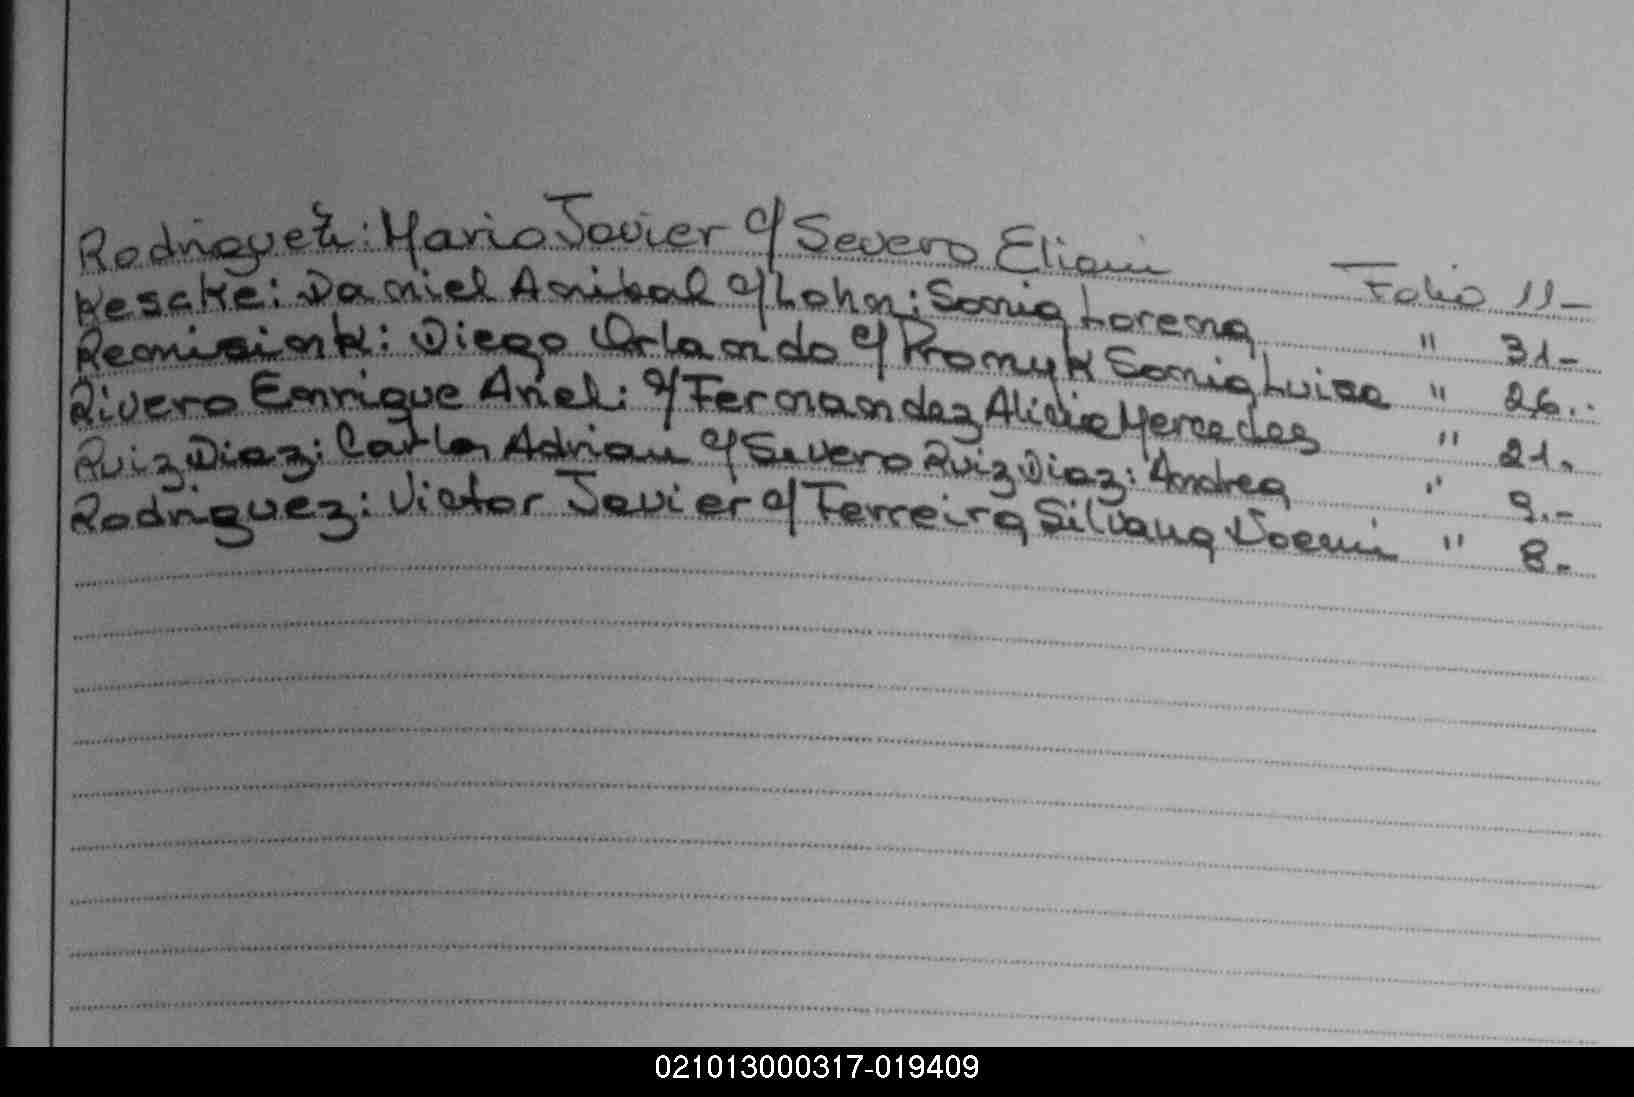 Rodriguez: Mario Javier c/ Severo Eliani Folio 11-
Rescke: Daniel Anibal c/ Lohn: Sonia Lorena " 31-
Diego Orlando c/ Promyk Sonia Luisa " 26.-
Rivero Enrique Ariel: c/ Fernandez Alicia Mercedes " 21.
Ruiz Diaz: Carlos Adrian c/ Severo Ruiz Diaz: Andrea " 9.-
Rodriguez: Victor Javier c/ Ferreira Silvana Noemi " 8.-
021013000317-019409